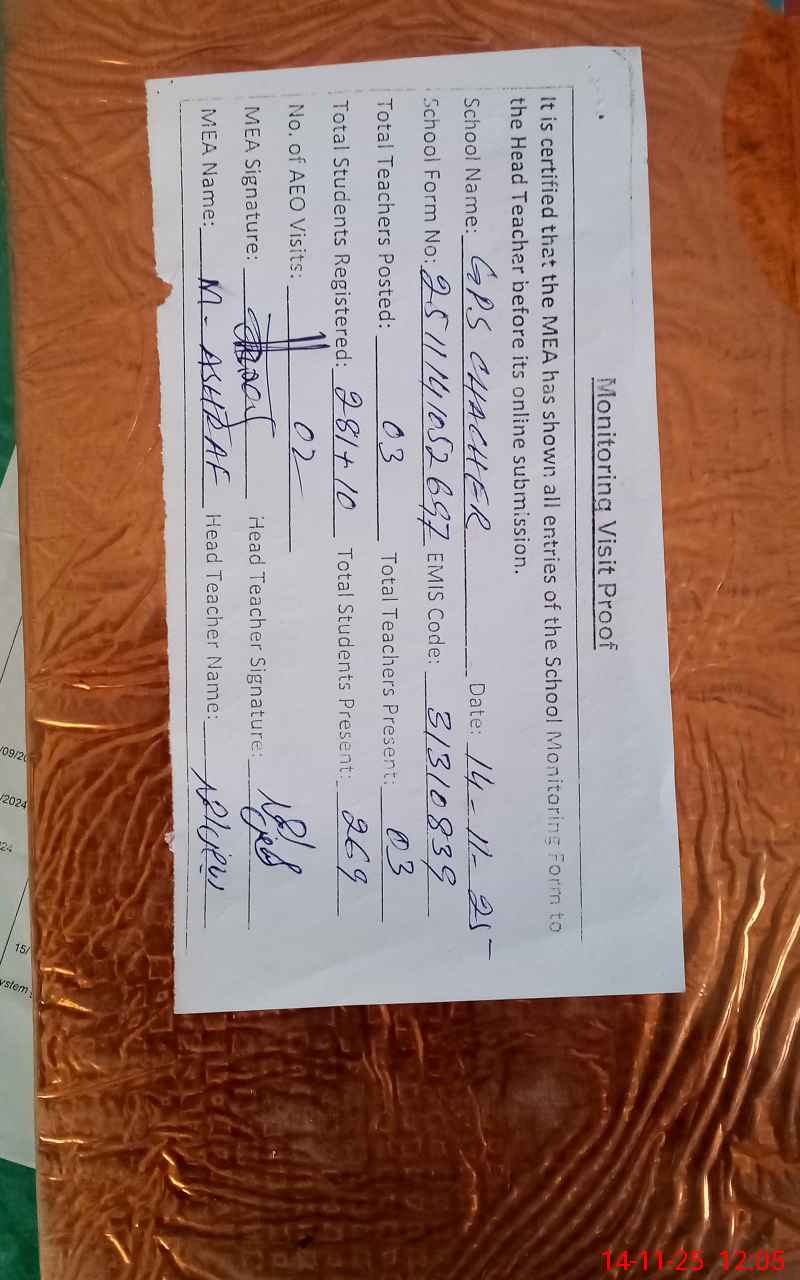 Monitoring Visit Proof
It is certified that the MEA has shown all entries of the School Monitoring Form to
the Head Teacher before its online submission.
School Name: GPS CHACHER Date: 14-11-25
School Form No: 2511141052697 EMIS Code: 31310839
Total Teachers Posted: 03 Total Teachers Present: 03
Total Students Registered: 281+10 Total Students Present: 269
No. of AEO Visits: 02
MEA Signature: Head Teacher Signature:
MEA Name: M-ASHRAF Head Teacher Name:
/2024
24
15/
ystem
14-11-25 12:05